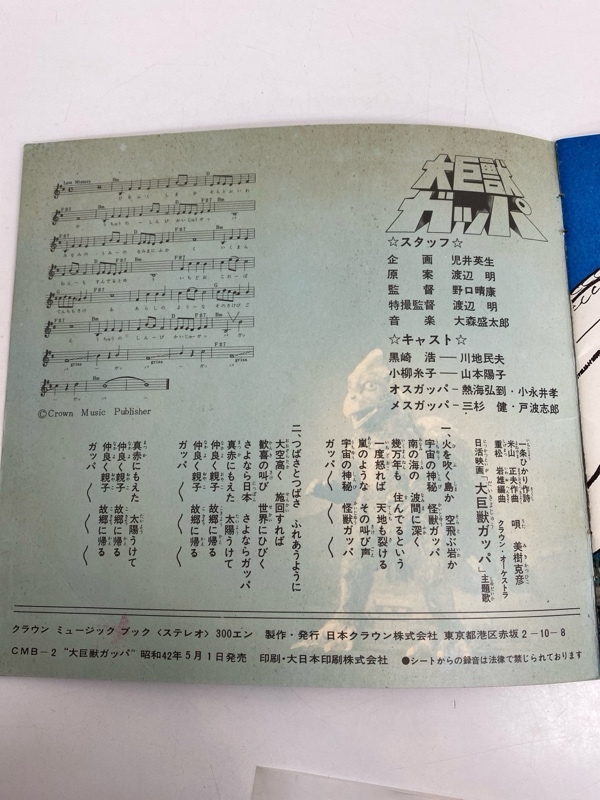 大巨獣
ガッパ
☆スタッフ☆
企画 児井英生
原案 渡辺 明
監督 野口晴康
特撮監督 渡辺 明
音楽 大森盛太郎
☆キャスト☆
黒崎 浩── 川地民夫
小柳糸子── 山本陽子
オスガッパ─ 熱海弘到・小永井孝
メスガッパ─ 三杉 健・戸波志郎
Less Western
©Crown Music Publisher
日活映画「大巨獣ガッパ」主題歌
一条ひかり作詩
米山 正夫作曲
重松 岩雄編曲
唄 美樹克彦
クラウン・オーケストラ
一、火を吹く島か 空飛ぶ岩か
宇宙の神秘 怪獣ガッパ
南の海の 波間に深く
幾万年も 住んでるという
一度怒れば 天地も裂ける
嵐のような その叫び声
宇宙の神秘 怪獣ガッパ
ガッパ〱〱
二、つばさとつばさ ふれあうように
大空高く 施回すれば
歓喜の叫び 世界にひびく
さよなら日本 さよならガッパ
真赤にもえた 太陽うけて
仲良く親子 故郷に帰る
ガッパ〱〱
真赤にもえた 太陽うけて
仲良く親子 故郷に帰る
仲良く親子 故郷に帰る
ガッパ〱〱
クラウン ミュージック ブック〈ステレオ〉300エン 製作・発行 日本クラウン株式会社 東京都港区赤坂2-10-8
CMB-2 "大巨獣ガッパ" 昭和42年5月1日発売 印刷・大日本印刷株式会社 ●シートからの録音は法律で禁じられております